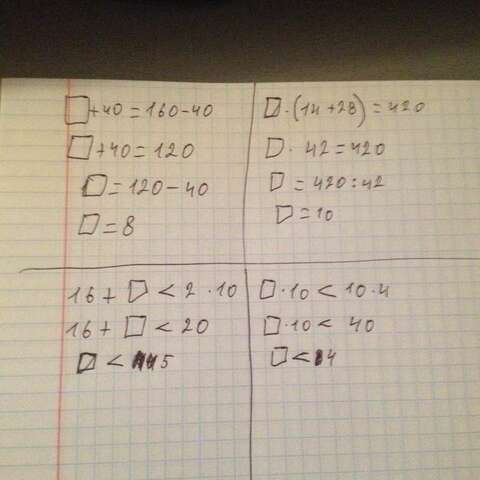 □+40=160-40
□+40=120
□=120-40
□=8
□·(14+28)=420
□·42=420
□=420:42
□=10
16+□<2·10
16+□<20
□<5
□·10<10·4
□·10<40
□<4